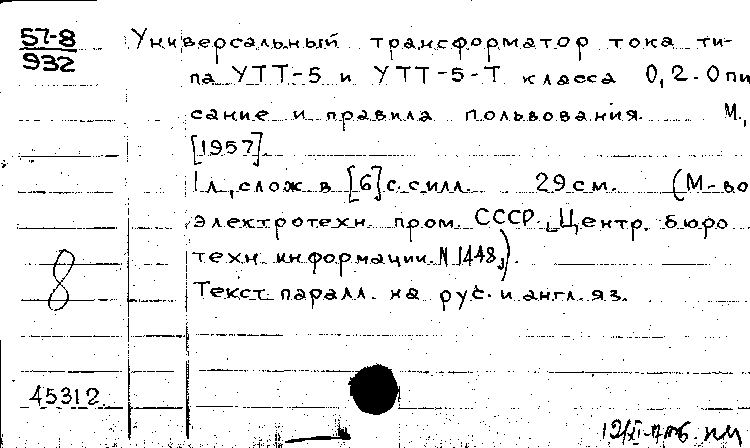 57-8
932
Универсальный трансформатор тока ти-
па УТТ-5 и УТТ-5-Т класса 0,2. Опи
сание и правила пользования. М.,
[1957].
1 л., слож в [6] с. с илл. 29 см. (М-во
электротехн. пром. СССР. Центр. бюро
техн. информации. N 1448).
Текст паралл. на рус. и англ. яз.
8
45312